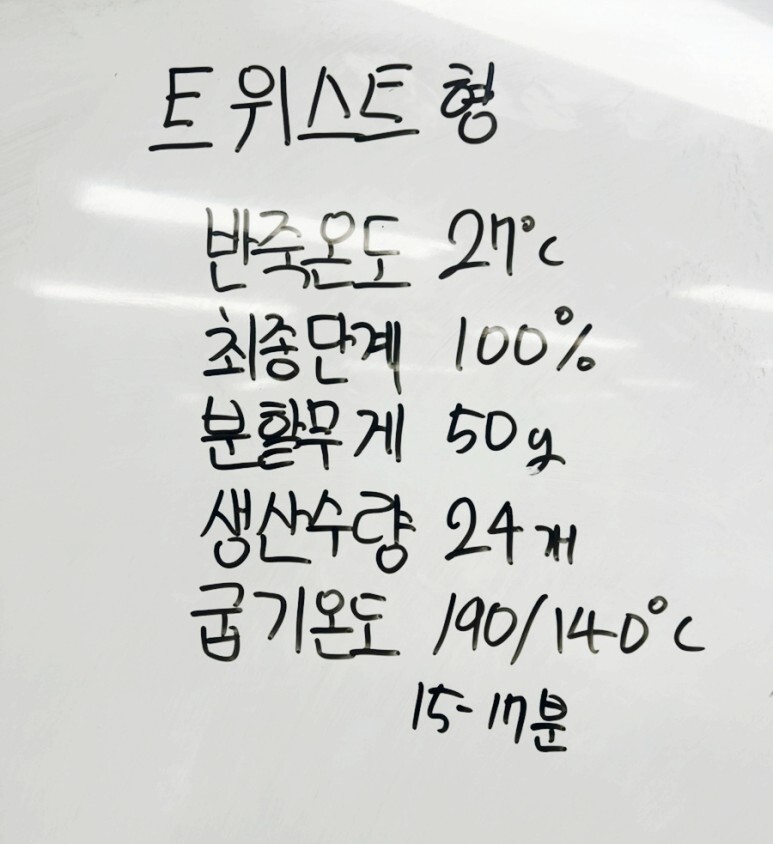 트위스트형
반죽온도 27℃
최종단계 100%
분할무게 50g
생산수량 24개
굽기온도 190/140℃
15-17분